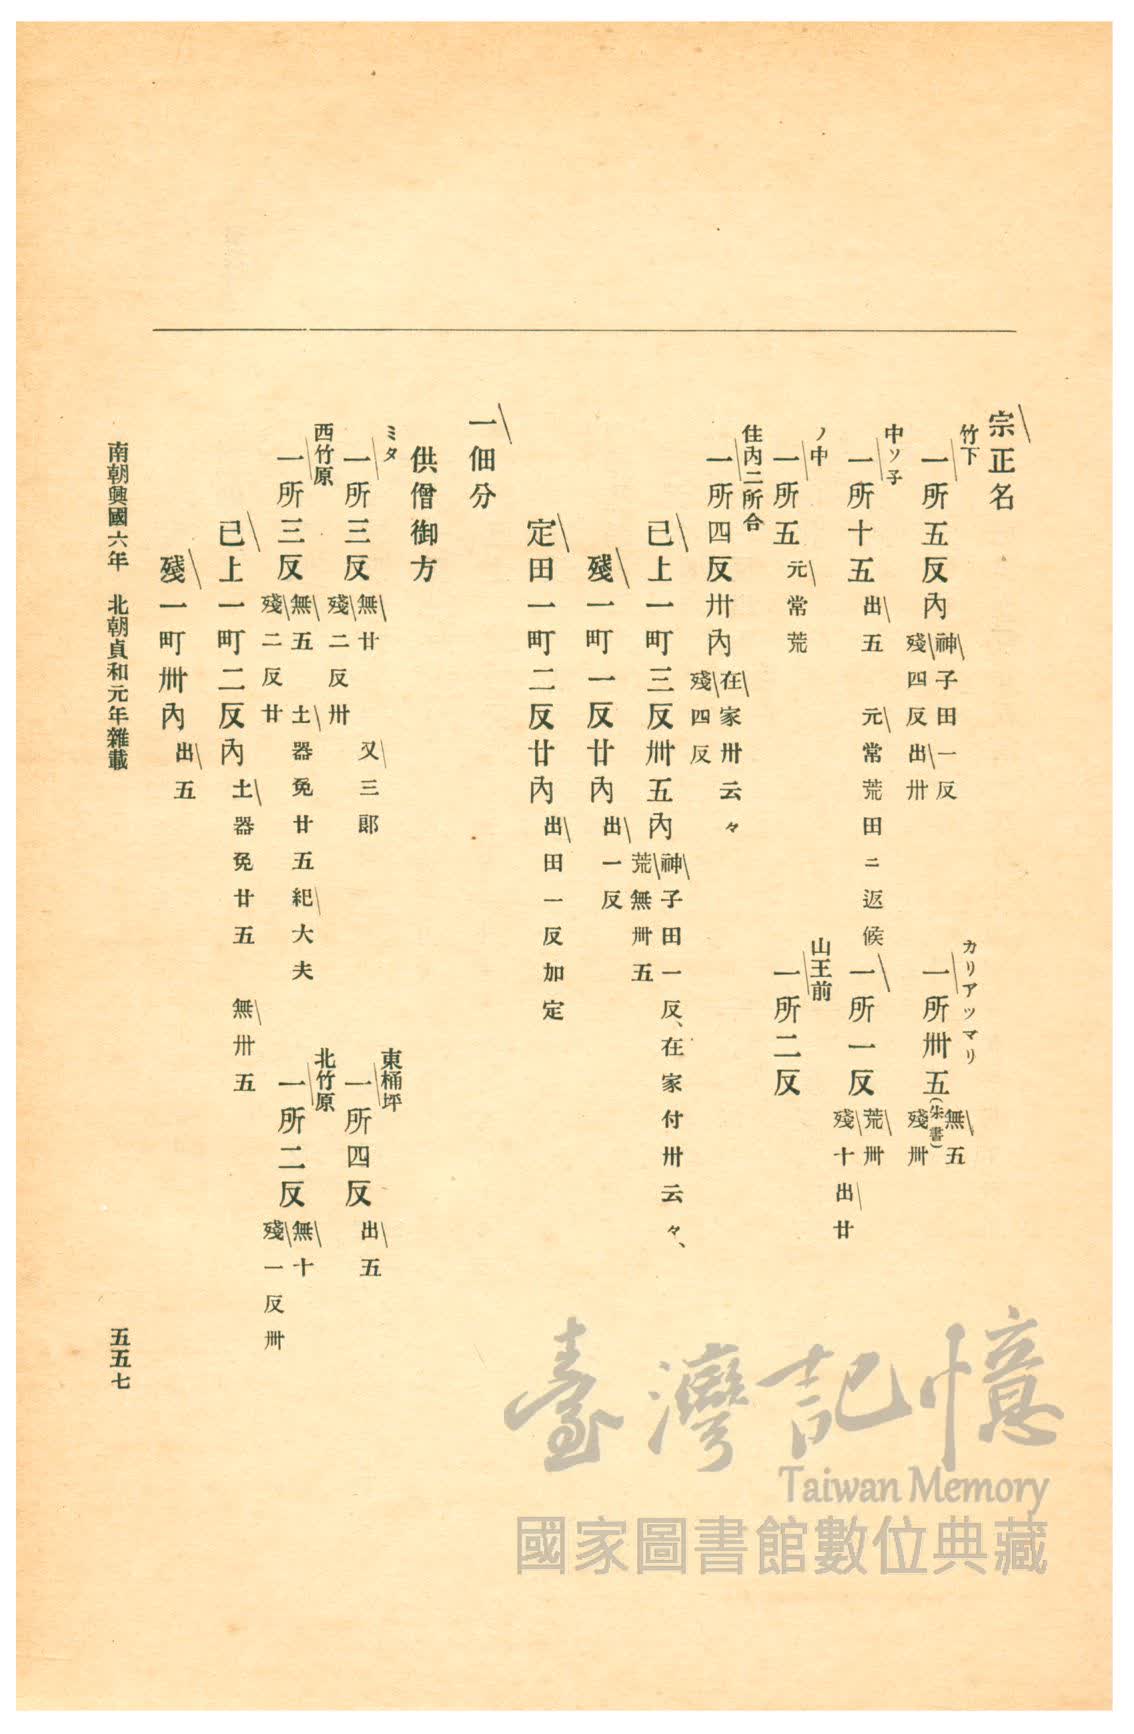 宗正名
竹下
一所五反內
神子田一反
殘四反出卅
カリアツマリ
一所卌五
(朱書)
無五
殘卌
中ソ子
一所十五
出五 元常荒田ニ返候
一所一反
荒卌
殘十出廿
ノ中
一所五
元常荒
山王前
一所二反
住內二所合
一所四反卅內
在家卅云々
殘四反
已上一町三反卌五內
神子田一反、在家付卅云々、
荒無卌五
殘一町一反廿內
出一反
定田一町二反廿內
出田一反加定
一佃分
供僧御方
ミタ
一所三反
無廿
殘二反卅
又三郎
東桶坪
一所四反
出五
西竹原
一所三反
無五 土器免廿五紀大夫
殘二反廿
北竹原
一所二反
無十
殘一反卌
已上一町二反內
土器免廿五 無卅五
殘一町卌內
出五
南朝興國六年 北朝貞和元年雜載
五五七
臺灣記憶
Taiwan Memory
國家圖書館數位典藏